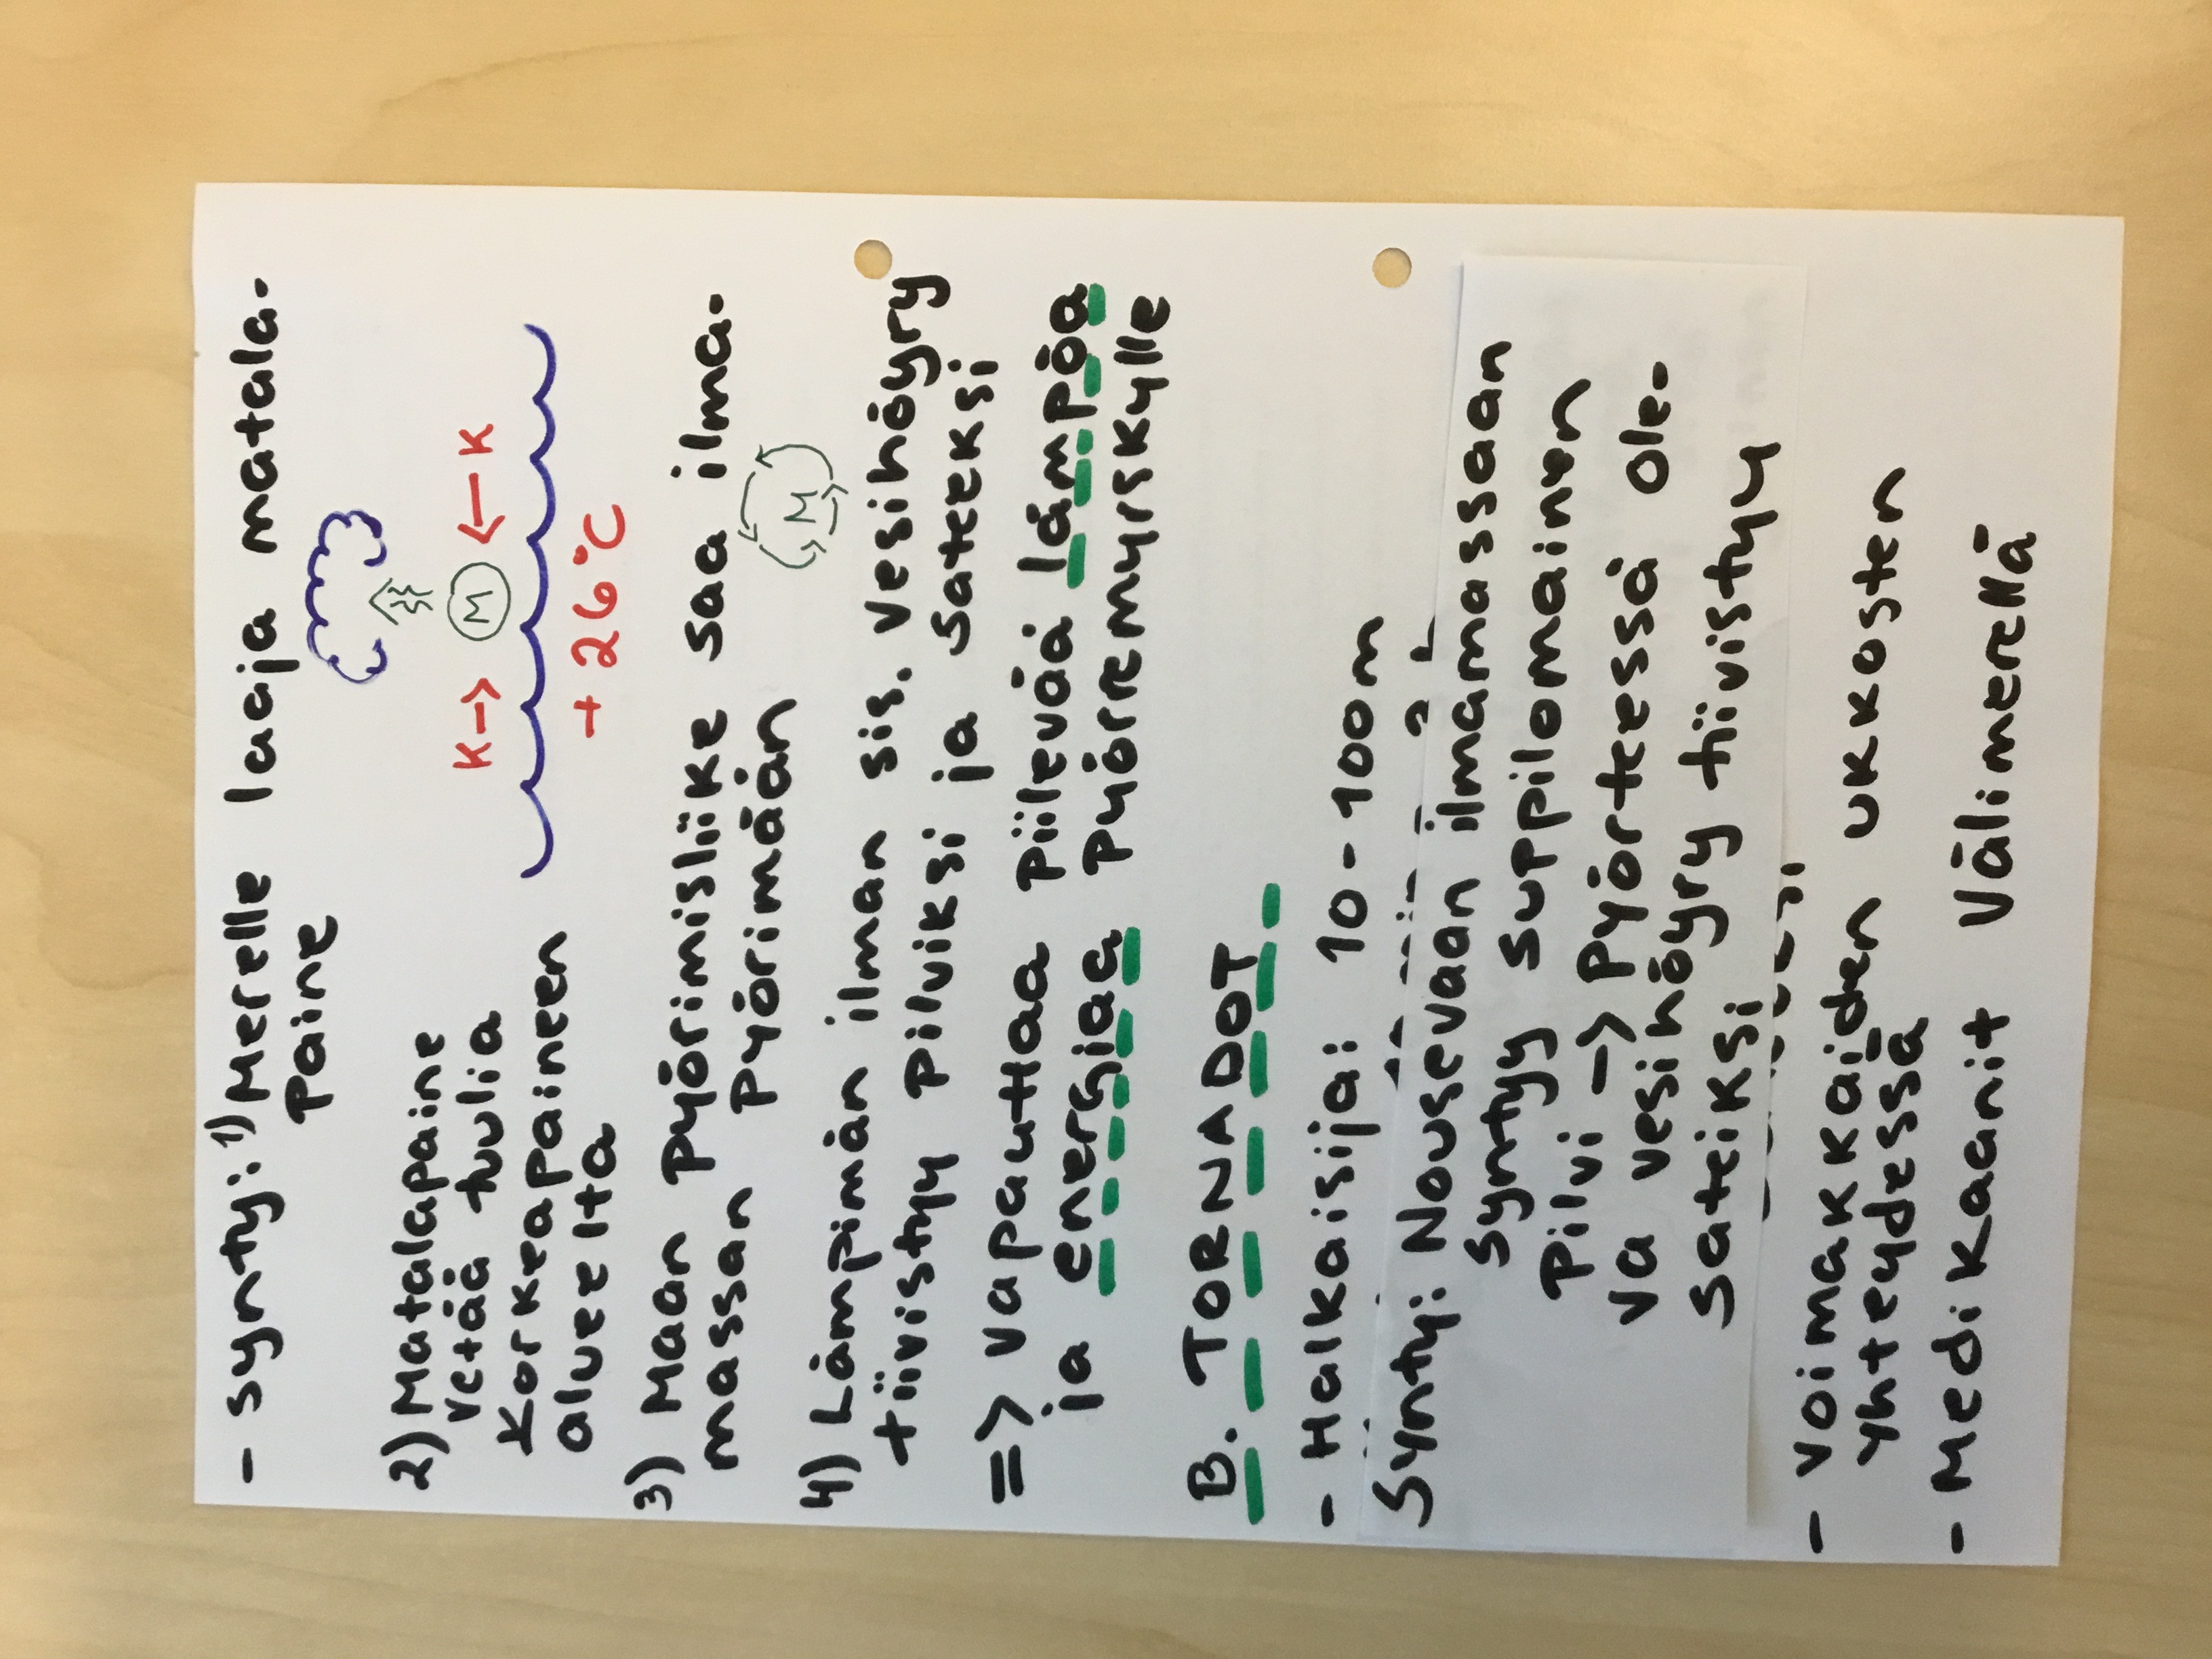 - synty: 1) Merelle laaja matala-
paine
2) Matalapaine
vetää tulia
Korkeapaineen
alueelta
K→ M ← K
+ 26°C
3) Maan pyörimisliike saa ilma-
massan pyörimään
M
4) Lämpimän ilman sis. vesihöyry
tiivistyy pilviksi ja sateksi
=> vapauttaa piilevää lämpöa
ja energiaa pyörremyrskylle
B. TORNADOT
- Halkaisija: 10-100m
Synty: Nousevaan ilmamassaan
syntyy suppilomainen
pilvi -> Pyörteessä ole-
va vesihöyry tiivistyy
sateiksi
- Voimakkaiden ukkosten
yhteydessä
- Medikaanit Välimerellä